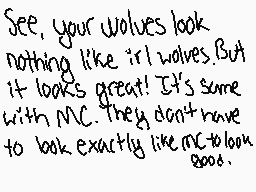 See, your wolves look
nothing like irl wolves. But
it looks great! It's same
with MC. They don't have
to look exactly like mc to look
good.